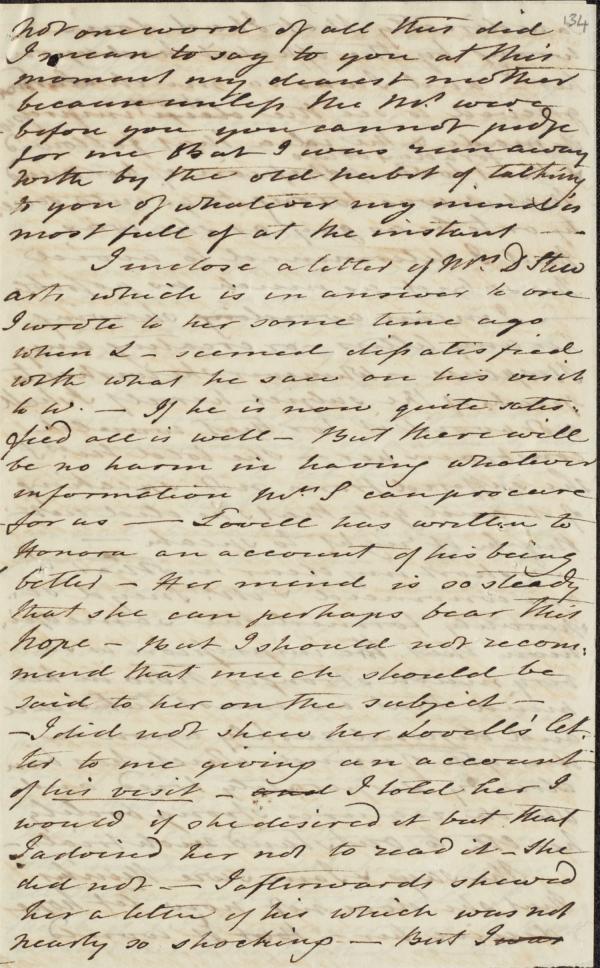 134
Not one word of all this did
I mean to say to you at this
moment my dearest mother
because unless the Ms. were
before you you cannot judge
for me But I was run away
with by the old habit of talking
to you of whatever my mind is
most full of at the instant —
I inclose a letter of Mrs. D Stew
arts which is in answer to one
I wrote to her some time ago
when L – seemed dissatisfied
with what he saw on his visit
to W. — If he is now quite satis-
fied all is well – But there will
be no harm in having whatever
information Mrs. S can procure
for us — Lovell has written to
Honora an account of his being
better – Her mind is so steady
that she can perhaps bear this
hope – But I should not recom-
mend that much should be
said to her on the subject –
– I did not shew her Lovell's let-
ter to me giving an account
of his visit – and I told her I
would if she desired it but that
I advised her not to read it – She
did not — I afterwards shewed
her a letter of his which was not
nearly so shocking — But I was